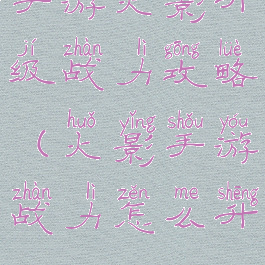 jí zhàn lì gōng lüè
级战力攻略
huǒ yǐng shǒu yóu
（火影手游
zhàn lì zěn me shēng
战力怎么升